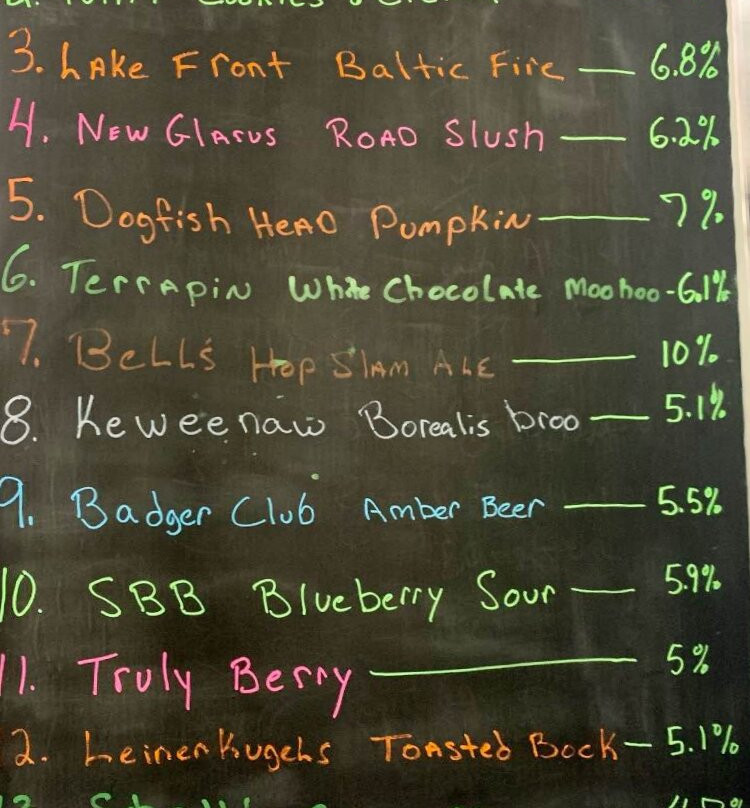 3. Lake Front Baltic Fire — 6.8%
4. New Glarus Road Slush — 6.2%
5. Dogfish Head Pumpkin — 7%
6. Terrapin White Chocolate Moo hoo - 6.1%
7. Bell's Hop Slam Ale — 10%
8. Keweenaw Borealis broo — 5.1%
9. Badger Club Amber Beer — 5.5%
10. SBB Blueberry Sour — 5.9%
11. Truly Berry — 5%
2. Leinenkugels Toasted Bock — 5.1%